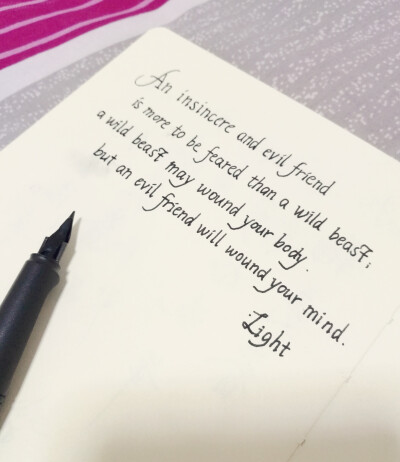 An insincere and evil friend
is more to be feared than a wild beast;
a wild beast may wound your body.
but an evil friend will wound your mind.
Light